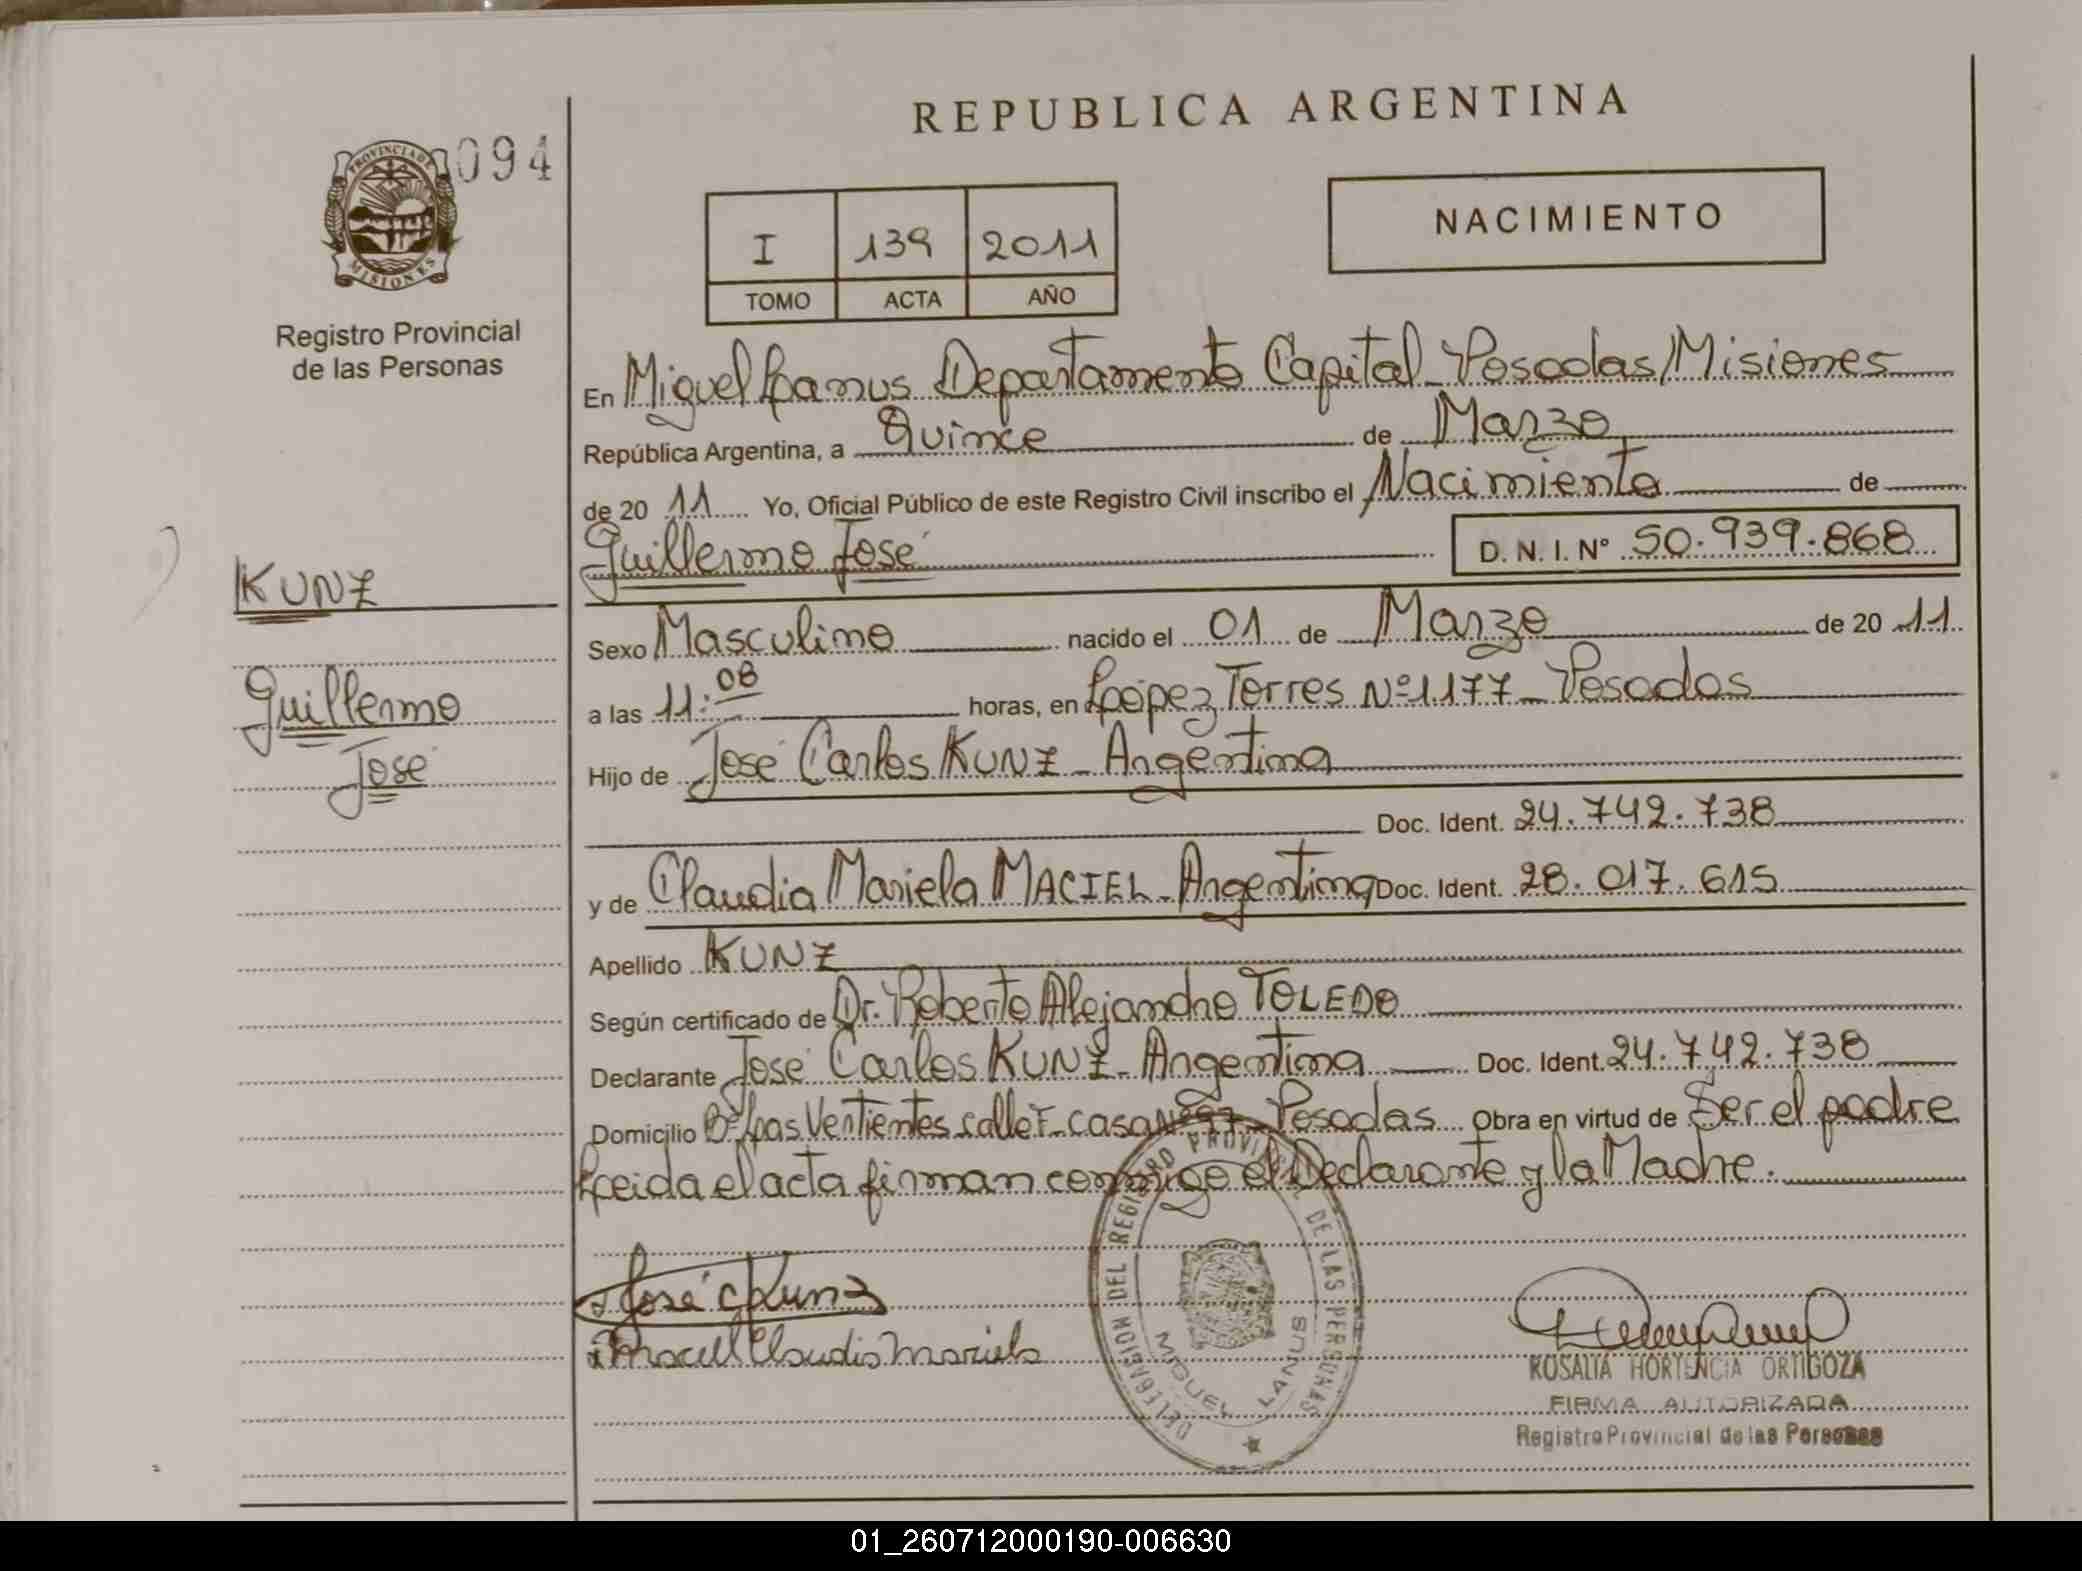 REPUBLICA ARGENTINA
094
PROVINCIA DE MISIONES
Registro Provincial
de las Personas
I 139 2011
TOMO ACTA AÑO
NACIMIENTO
En Miguel Lanus Departamento Capital - Posadas/Misiones
República Argentina, a Quince de Marzo
de 20 11 Yo, Oficial Público de este Registro Civil inscribo el Nacimiento de
Guillermo José D. N. I. Nº 50.939.868
KUNZ
Guillermo
José
Sexo Masculino nacido el 01 de Marzo de 20 11
a las 11:08 horas, en López Torres Nº 1177 - Posadas
Hijo de José Carlos KUNZ - Argentina
Doc. Ident. 24.742.738
y de Claudia Mariela MACIEL - Argentina Doc. Ident. 28.017.615
Apellido KUNZ
Según certificado de Dr. Roberto Alejandro TOLEDO
Declarante José Carlos KUNZ - Argentina Doc. Ident. 24.742.738
Domicilio Bº Las Vertientes calle casa Posadas Obra en virtud de Ser el padre
Leida el acta firman conmigo el Declarante y la Madre.
José C Kunz
Maciel Claudia Mariela
DELEGACION DEL REGISTRO PROVINCIAL DE LAS PERSONAS
MIGUEL LANUS
ROSALIA HORTENCIA ORTIGOZA
FIRMA AUTORIZADA
Registro Provincial de las Personas
01_260712000190-006630